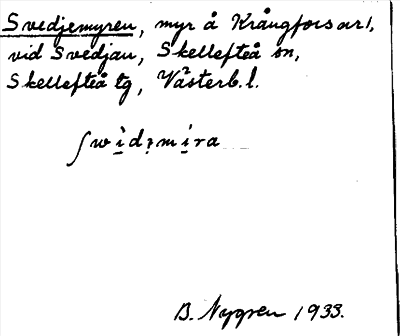 Svedjemyren, myr å Krångfors ar/,
vid Svedjan, Skellefteå sn,
Skellefteå tg, Västerb. l.
ʃwìdɿmíra
B. Nygren 1933.